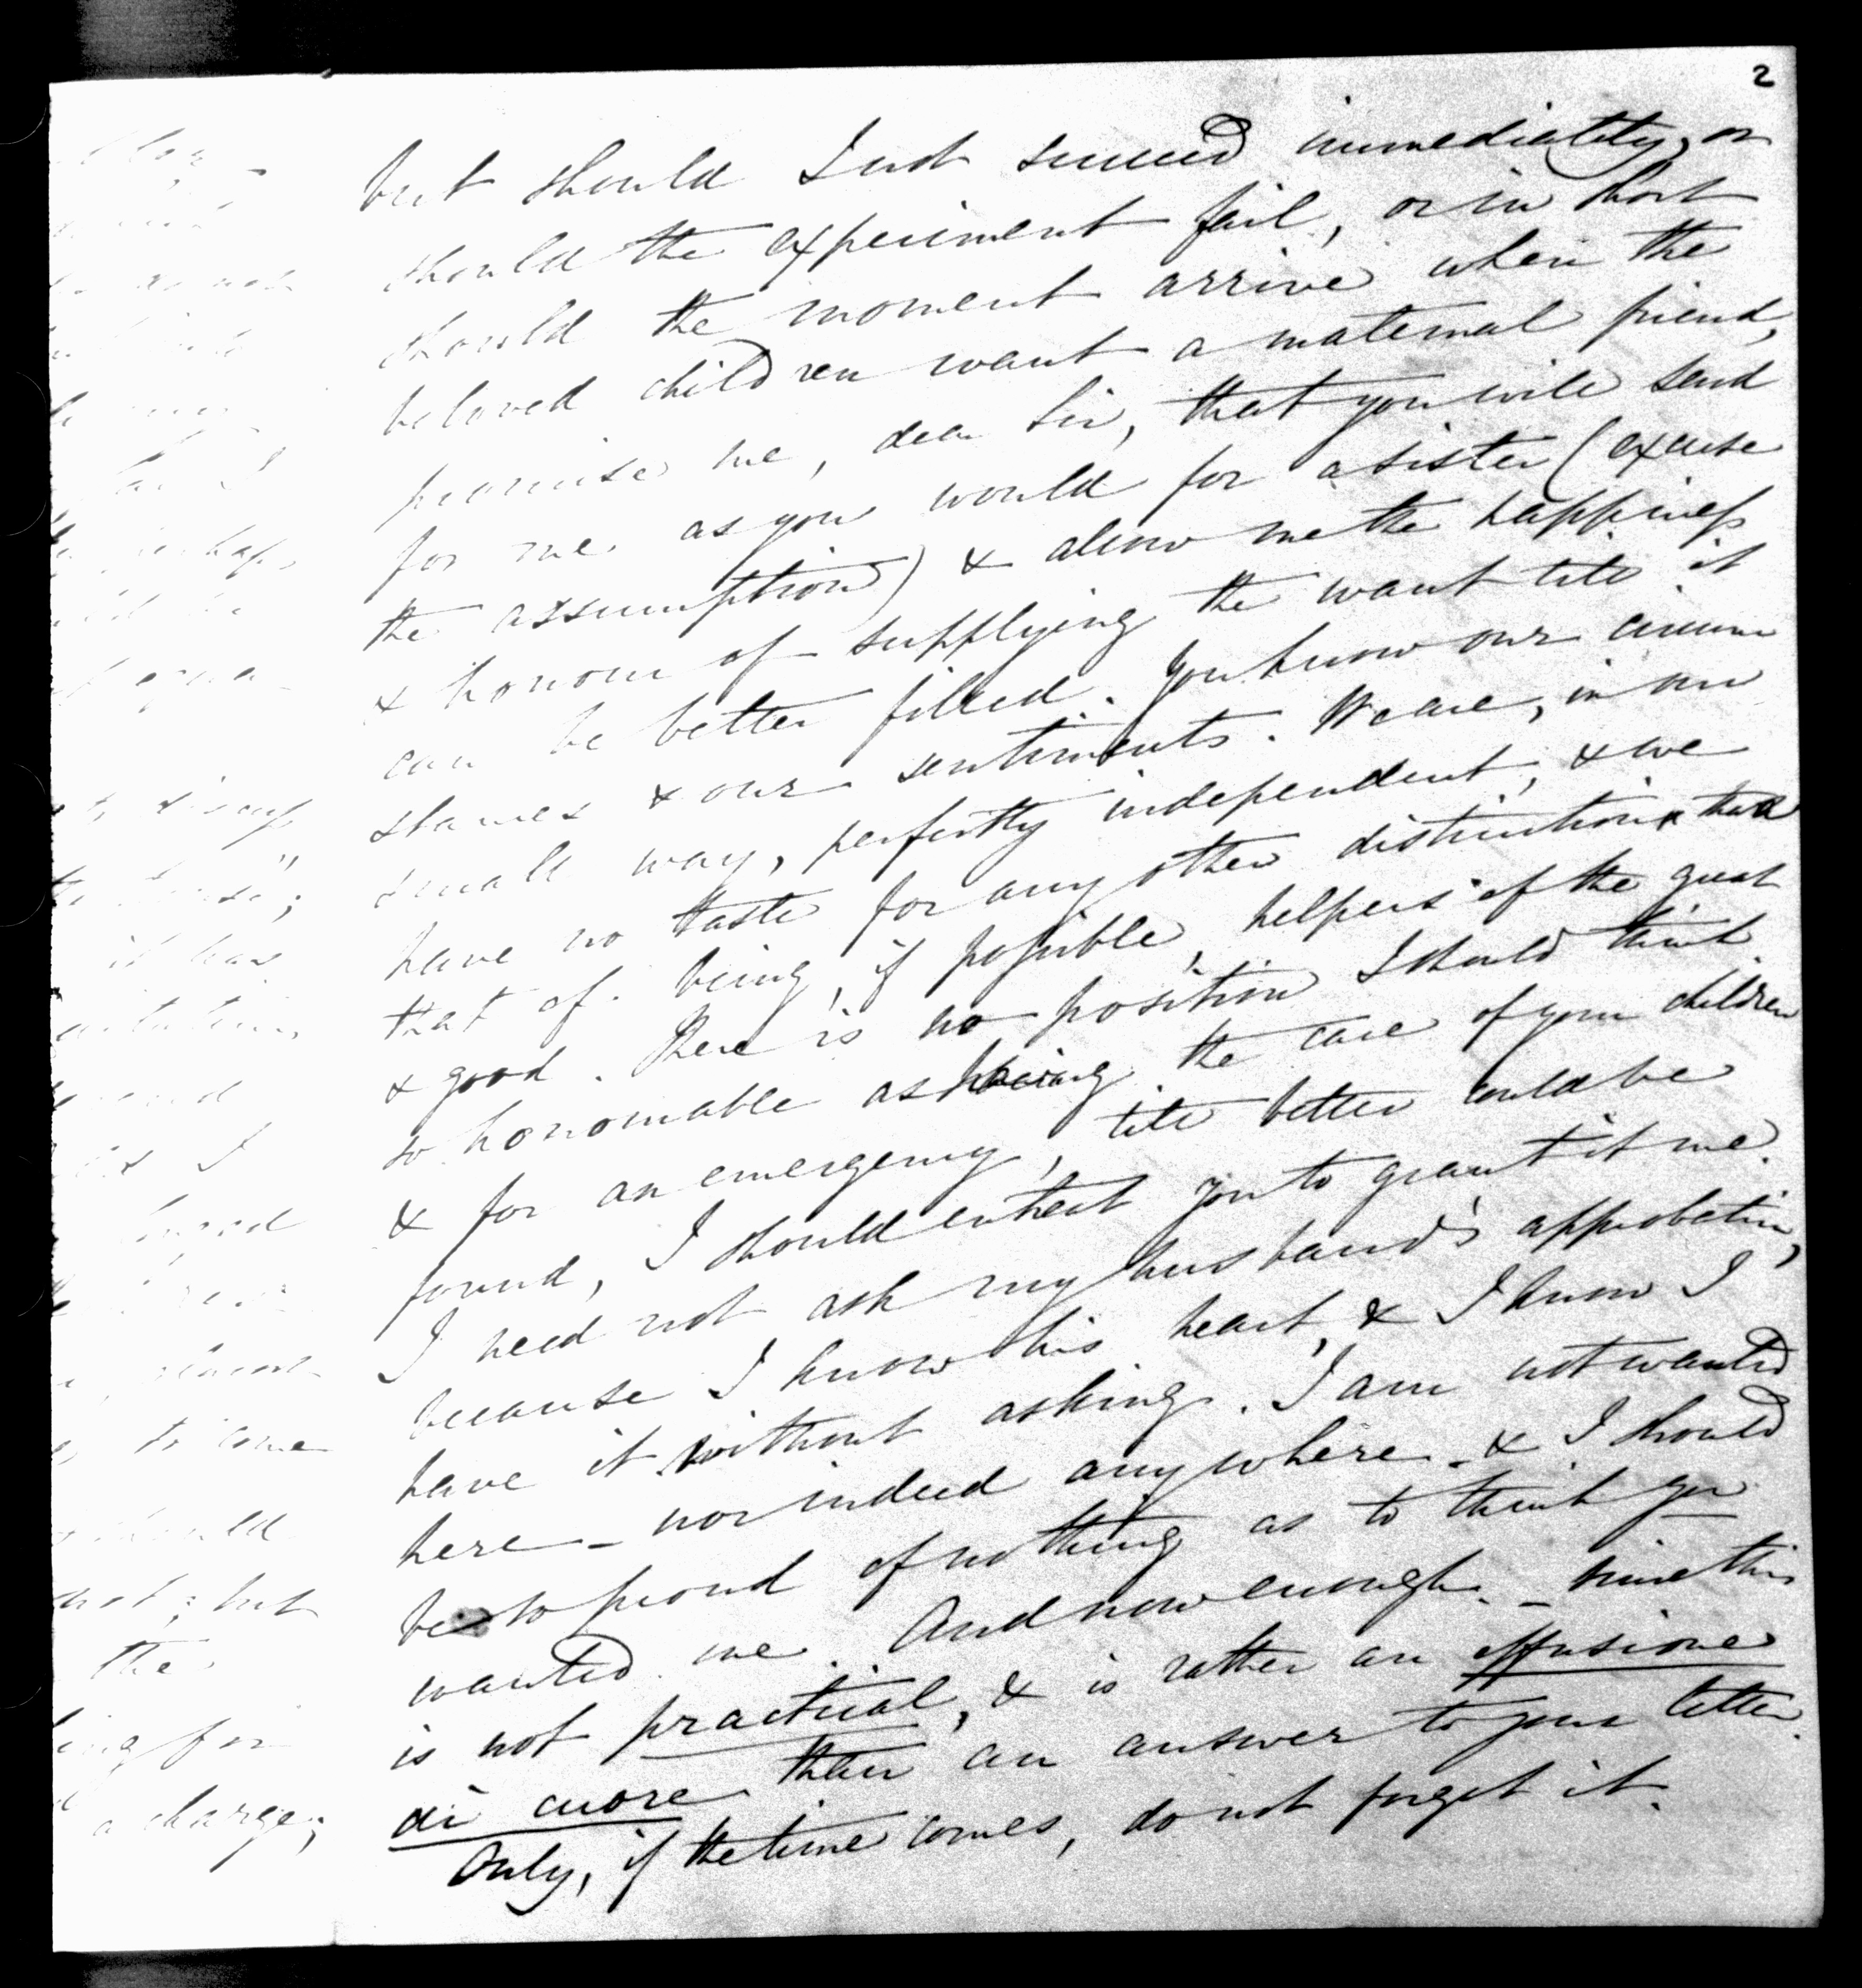 2
but should I not succeed immediately, or
should the experiment fail, or in short
should the moment arrive when the
beloved children want a maternal friend,
promise me, dear Sir, that you will send
for me as you would for a sister (excuse
the assumption) & allow me the happiness
& honour of supplying the want till it
can be better filled. You know our circum
stances & our sentiments. We are, in our
small way, perfectly independent, & we
have no taste for any other distinction than
that of being, if possible, helpers of the great
& good. There is no position I should think
so honourable as having the care of your children
& for an emergency, till better could be
found, I should entreat you to grant it me.
I need not ask my husband's approbation,
because I know his heart, & I know I
have it without asking. I am not wanted
here – nor indeed anywhere – & I should
be so proud of nothing as to think you
wanted me. And now enough – since this
is not practical, & is rather an effusione
di cuore than an answer to your letter.
Only, if the time comes, do not forget it.
to come
but
the
a charge;